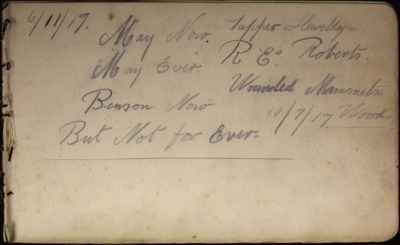 6/11/17.
May Now.
May Ever.
Benson Now
But Not for Ever.
Tapper
R Eo Roberts.
Wounded
10/7/17 Wood